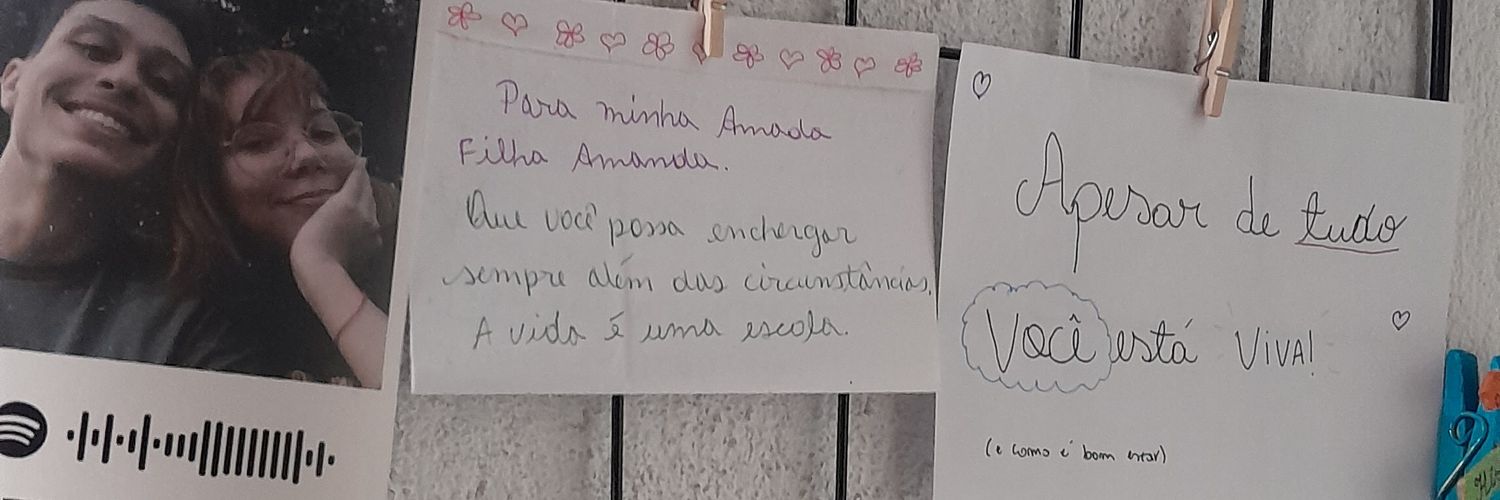 Para minha Amada
Filha Amanda.
Que você possa enchergar
sempre além das circunstâncias.
A vida é uma escola.
Apesar de tudo
Você está VIVA!
(e como é bom estar)